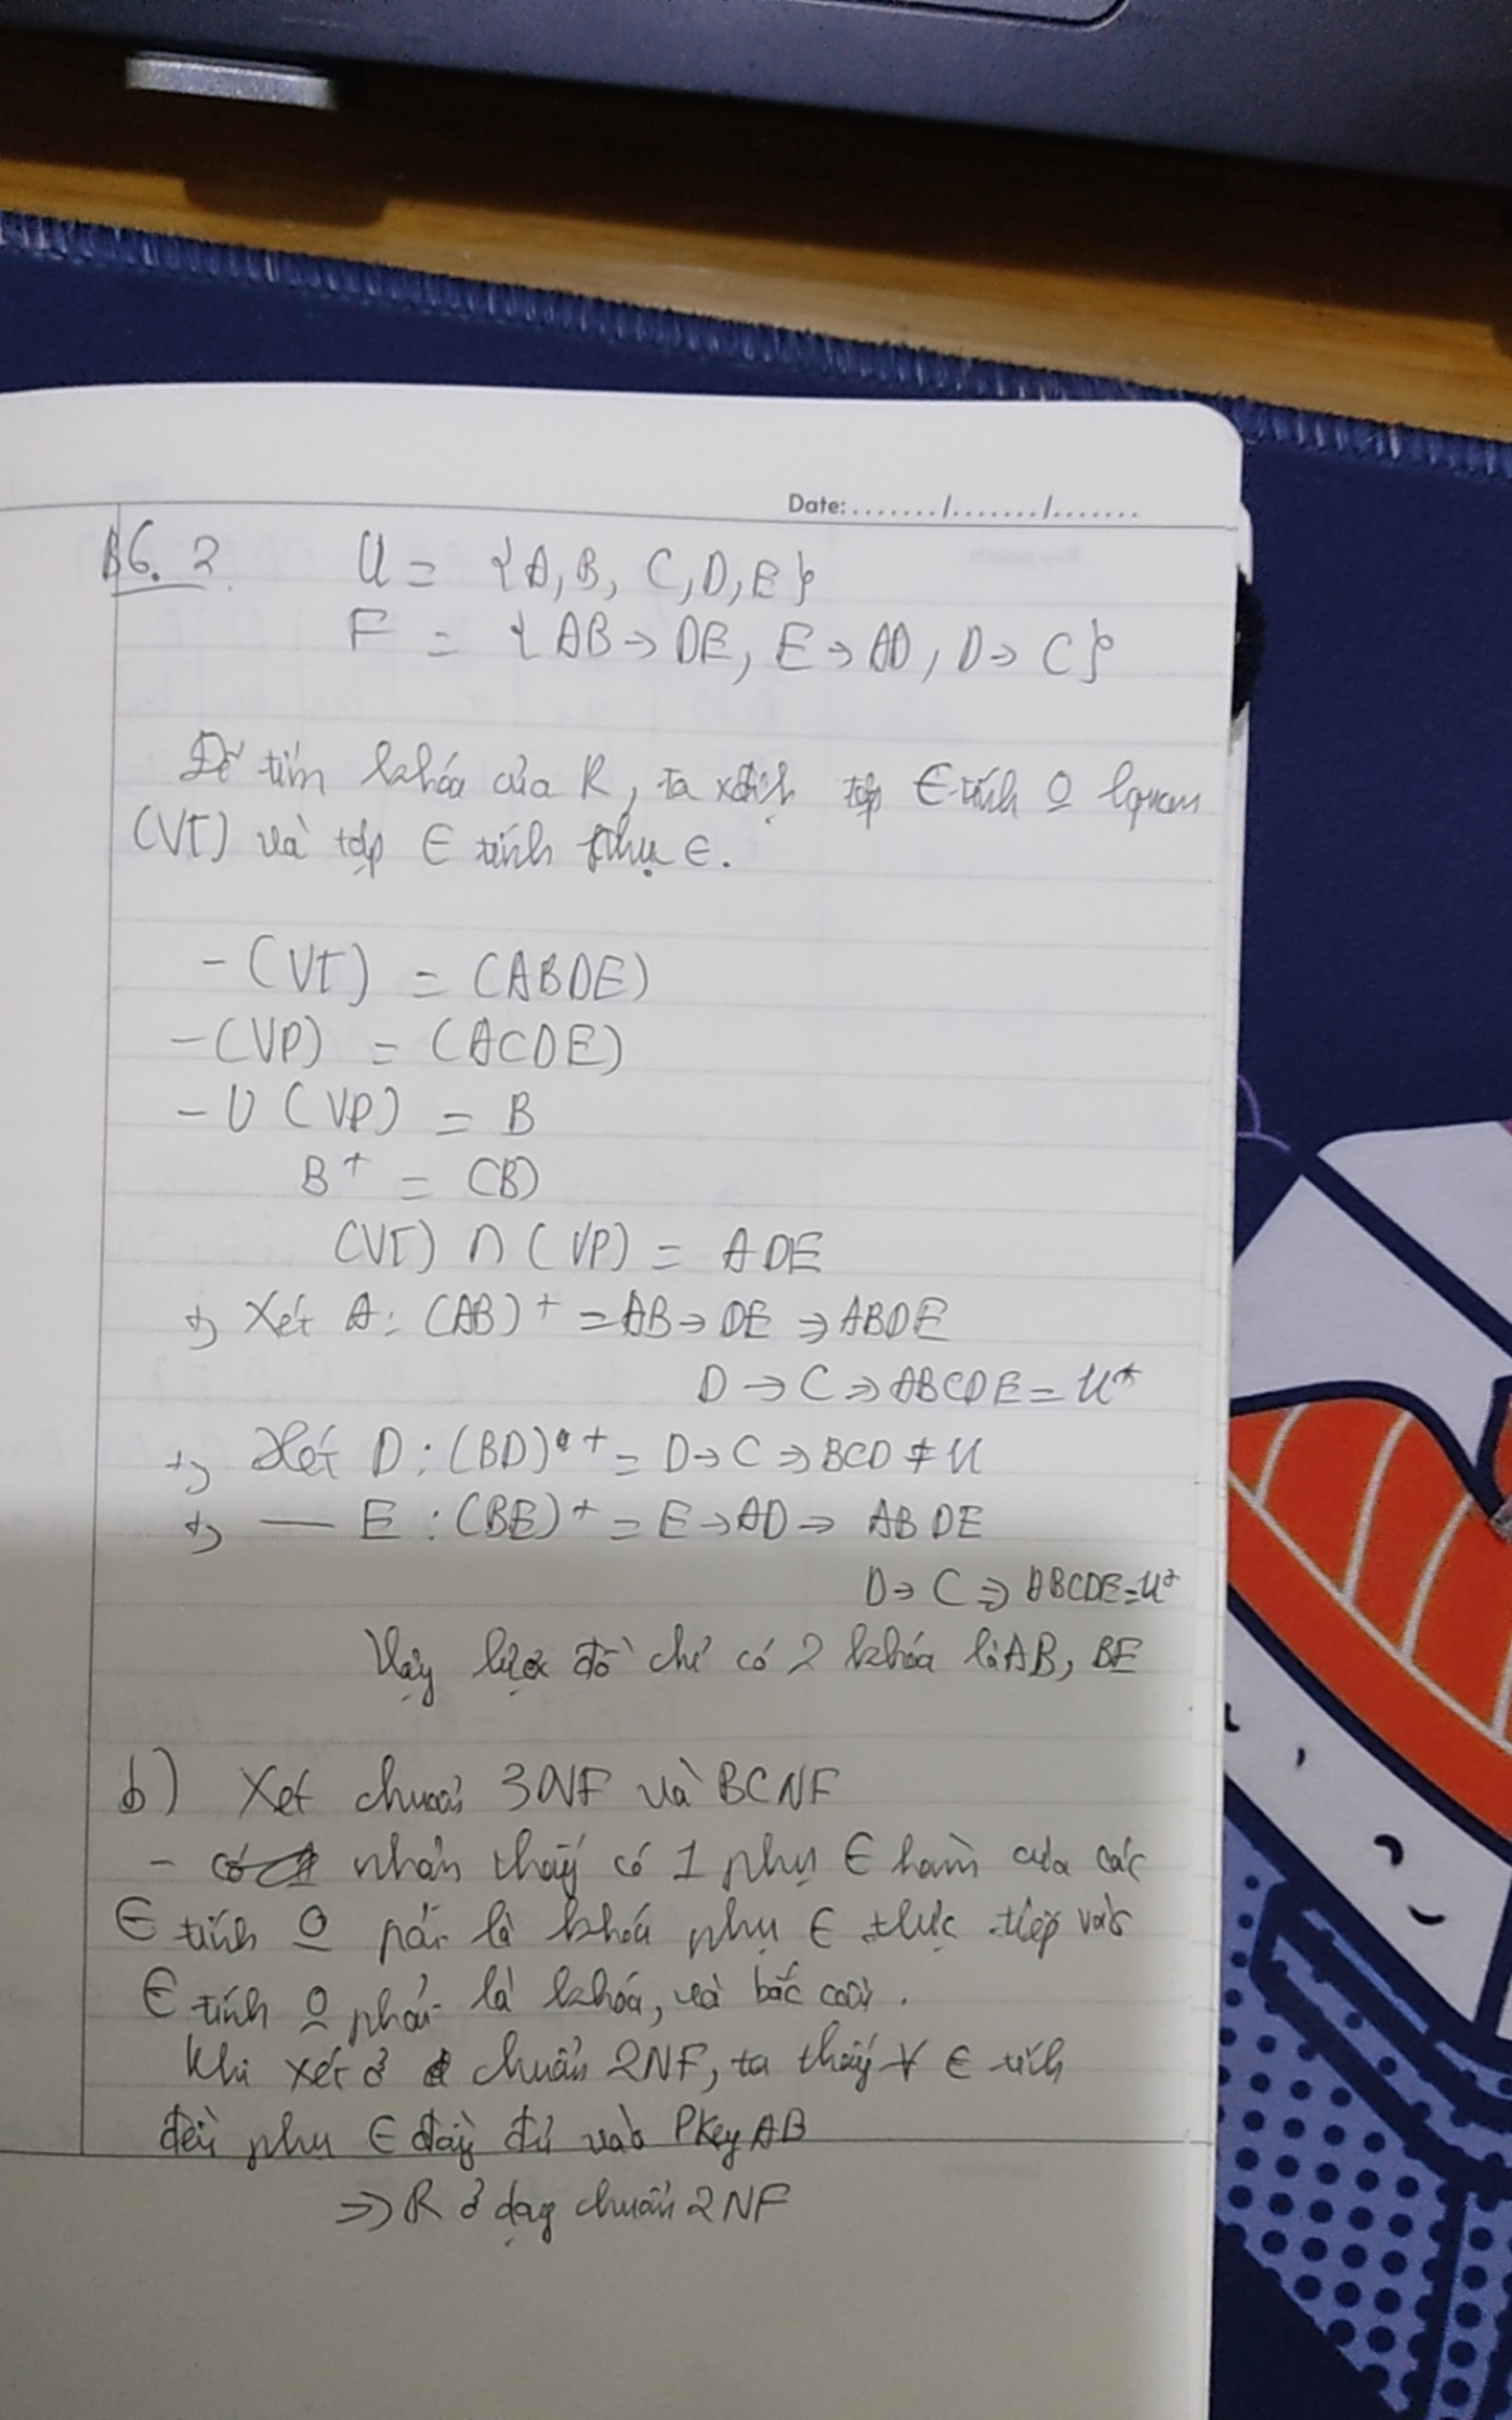 Date:......../......../........
B6. 2 U = {A, B, C, D, E}
F = {AB → DE, E → AD, D → C}
Để tìm khóa của R, ta xđịnh tập ∈ tính O̲ lquan
(VT) và tập ∈ tính phụ ∈.
- (VT) = (ABDE)
- (VP) = (ACDE)
- U (VP) = B
B⁺ = (B)
(VT) ∩ (VP) = ADE
+) Xét A: (AB)⁺ = AB → DE ⇒ ABDE
D → C ⇒ ABCDE = U⁺
+) Xét D : (BD)⁺ = D → C ⇒ BCD ≠ U
+) — E : (BE)⁺ = E → AD ⇒ ABDE
D → C ⇒ ABCDE = U⁺
Vậy lược đồ chỉ có 2 khóa là AB, BE
b) Xét chuẩn 3NF và BCNF
- nhận thấy có 1 phụ ∈ hàm của các
∈ tính O̲ pải là khóa phụ ∈ trực tiếp vào
∈ tính O̲ phải là khóa, và bắc cầu.
Khi xét ở chuẩn 2NF, ta thấy ∀ ∈ tính
đều phụ ∈ đầy đủ vào PKey AB
⇒ R ở dạng chuẩn 2NF